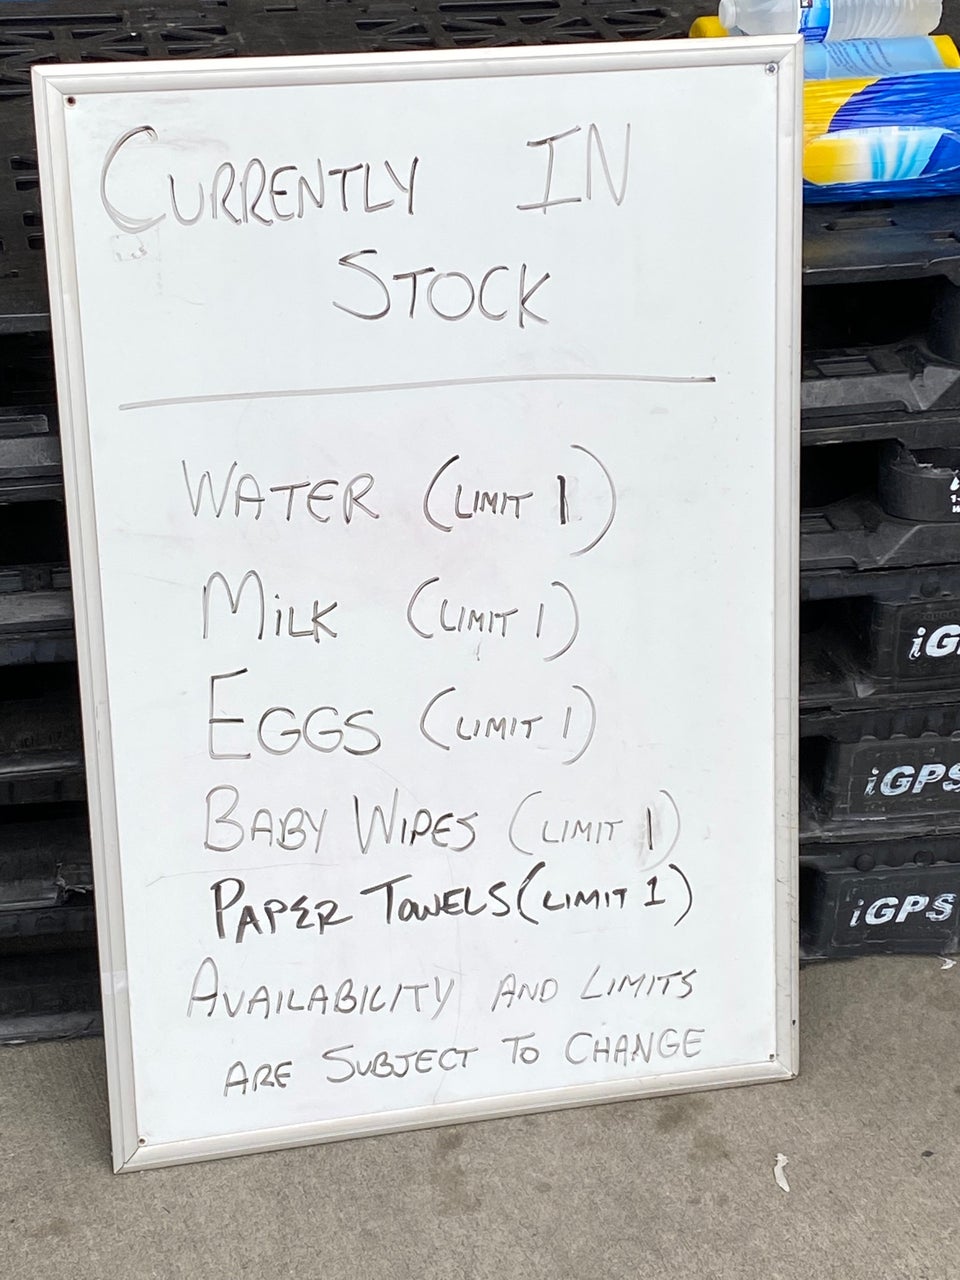 CURRENTLY IN
STOCK
WATER (LIMIT 1)
MiLK (LIMIT 1)
EGGS (LIMIT 1)
BABY WIPES (LIMIT 1)
PAPER TOWELS (LIMIT 1)
AVAILABILITY AND LIMITS
ARE SUBJECT TO CHANGE
iG
iGPS
iGPS